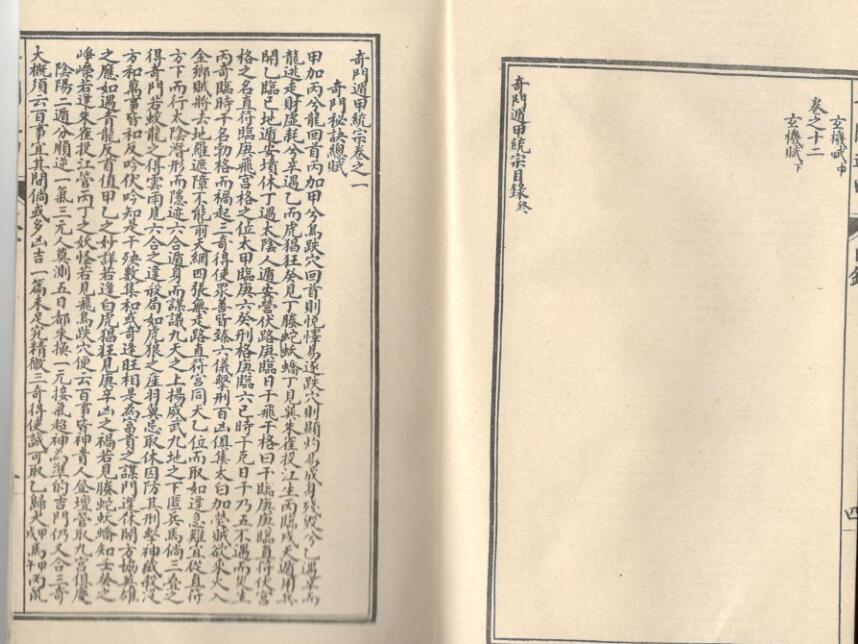 玄機賦中
卷之十二
玄機賦下
奇門遁甲統宗目錄終
奇門遁甲統宗卷之一
奇門秘訣總賦
甲加丙兮龍回首丙加甲兮鳥跌穴回首則悅懌易遂跌穴則顯灼易成身殘毀兮乙遇辛而
龍逃走財虛耗兮辛遇乙而虎猖狂癸見丁騰蛇妖蟜丁見癸朱雀投江生丙臨戌天遁用兵
開乙臨已地遁安墳休丁遇太陰人遁安營伏路庚臨日干飛干格曰干臨庚庚臨直符伏宮
格之名直符臨庚飛宮格之位太甲臨庚六癸刑格庚臨六已時干克日干乃五不遇而災生
丙奇臨時干名勃格而禍起三奇得使眾善皆臻六儀擊刑百凶俱集太白加熒賊欲來火入
金鄉賊將去地羅遮障不能前天網四張無走路直符宮同天乙位而取如逢急難宜從直符
方下而行太陰潛形而隱迹六合遁身而謀議九天之上揚威武九地之下匿兵馬倘三奎之
得奇門若蛟龍之得雲雨見六合之逢殷局如虎狼之生羽翼忌取休囚防其刑擊神藏殺沒
方和萬事皆和反吟伏吟知是干殃數集和或奇逢旺相是為富貴之謀門逢休開方協英雄
之應如遇青龍反首值甲乙之妙詳若逢白虎猖狂見庚辛凶之禍若見騰蛇妖蟜知壬癸之
崢嶸若逢朱雀投江管丙丁之妖怪若見飛鳥跌穴便云百事皆神貴人登壇管取九宮俱慶
陰陽二遁分順逆一氣三元人莫測五日都來換一元接氣超神為準的吉門仍又合三奇
大概須云百事宜其間倘或多凶吉一篇未足究精微三奇得使誠可取乙歸犬甲馬午丙鼠